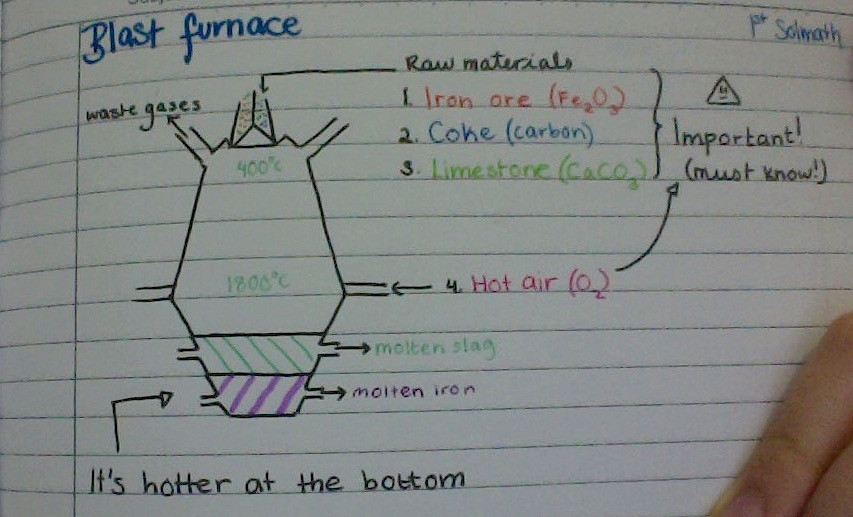 Blast furnace
1st Solmath
Raw materials
waste gases
1. Iron ore (Fe2O3)
2. Coke (carbon)
3. Limestone (CaCO3)
Important!
(must know!)
400°C
1800°C
4. Hot air (O2)
molten slag
molten iron
It's hotter at the bottom